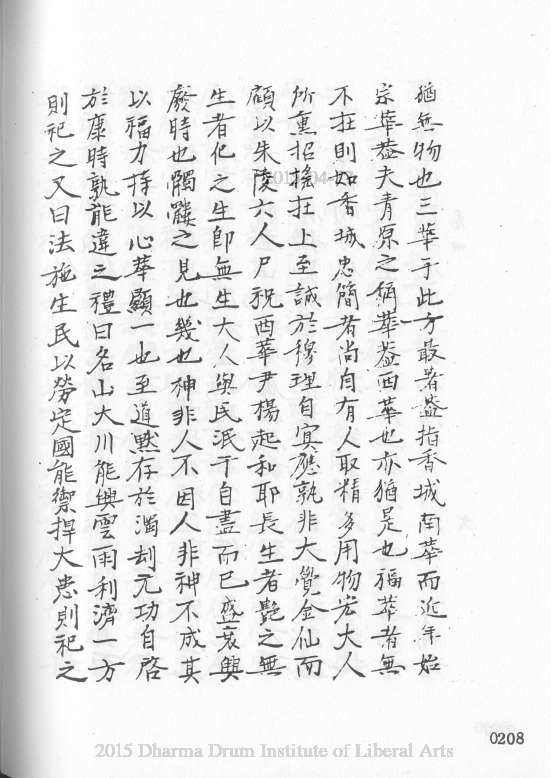 猶無物也三華于此方最著蓋指香城南華而近年始
宗華蓋夫青原之稱華蓋西華也亦猶是也福華者無
不在則如香城忠簡者尚自有人取精多用物宏大人
所熏招搖在上至誠於穆理自寘應孰非大覺金仙而
顧以朱陵六人尸祝西華尹楊起和耶長生者艷之無
生者化之生卽無生大人與民泯于自盡而已盛衰興
廢時也髑髏之見也幾也神非人不因人非神不成其
以福力持以心華顯一也至道默存於濁刦元功自啓
於康時孰能違之禮曰名山大川能興雲雨利濟一方
則祀之又曰法施生民以勞定國能禦捍大患則祀之
0208
2015 Dharma Drum Institute of Liberal Arts